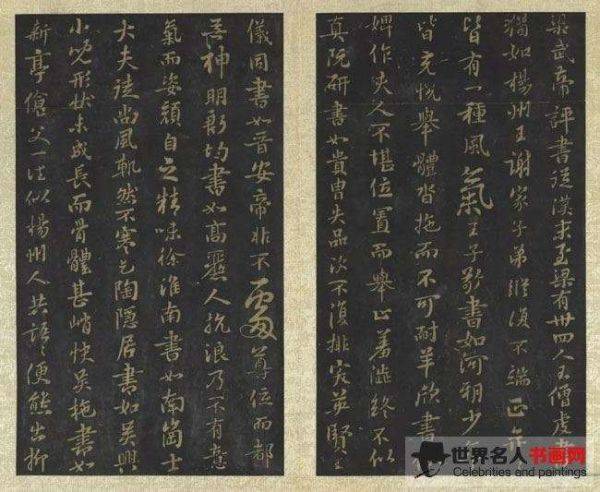 梁武帝評書從漢末至梁有卅四人王僧虔書
猶如楊州王謝家子弟縱復不端正奕
皆有一種風氣王子敬書如河朔少
皆充悅舉體沓拖而不可耐羊欣書
婢作夫人不堪位置而舉止羞澁終不似
真阮研書如貴胄失品次不復排突英賢王
儀同書如晉安帝非不處尊位而都
無神明殷均書如高麗人抗浪乃不有意
氣而姿顏自乏精味徐淮南書如南崗士
大夫徒尚風軌然不寒乞陶隱居書如吳興
小兒形狀未成長而骨體甚峭快吳施書如
新亭傖父一往似楊州人共語〻便態出柳
世界名人书画网
Celebrities and paintings